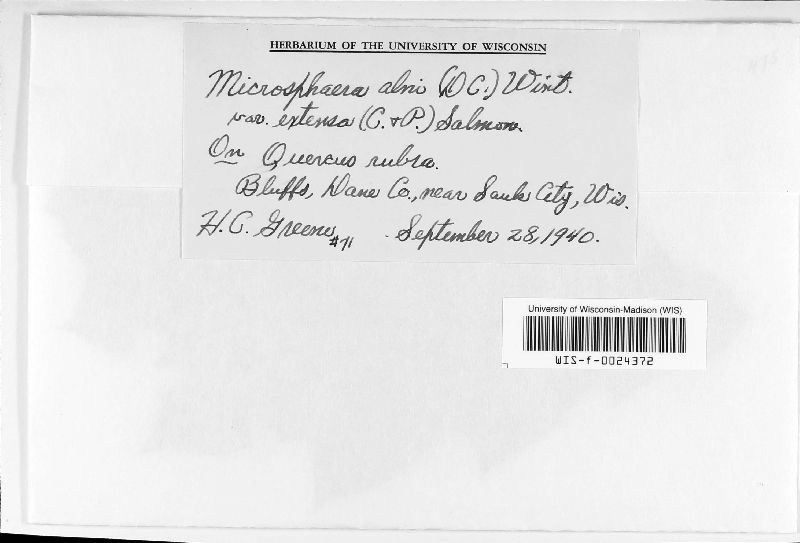 HERBARIUM OF THE UNIVERSITY OF WISCONSIN
Microsphaera alni (DC.) Wint.
var. extensa (C. & P.) Salmon.
On Quercus rubra.
Bluffs, Dane Co., near Sauk City, Wis.
H. C. Greene #71 September 28, 1940.
University of Wisconsin-Madison (WIS)
WIS-f-0024372